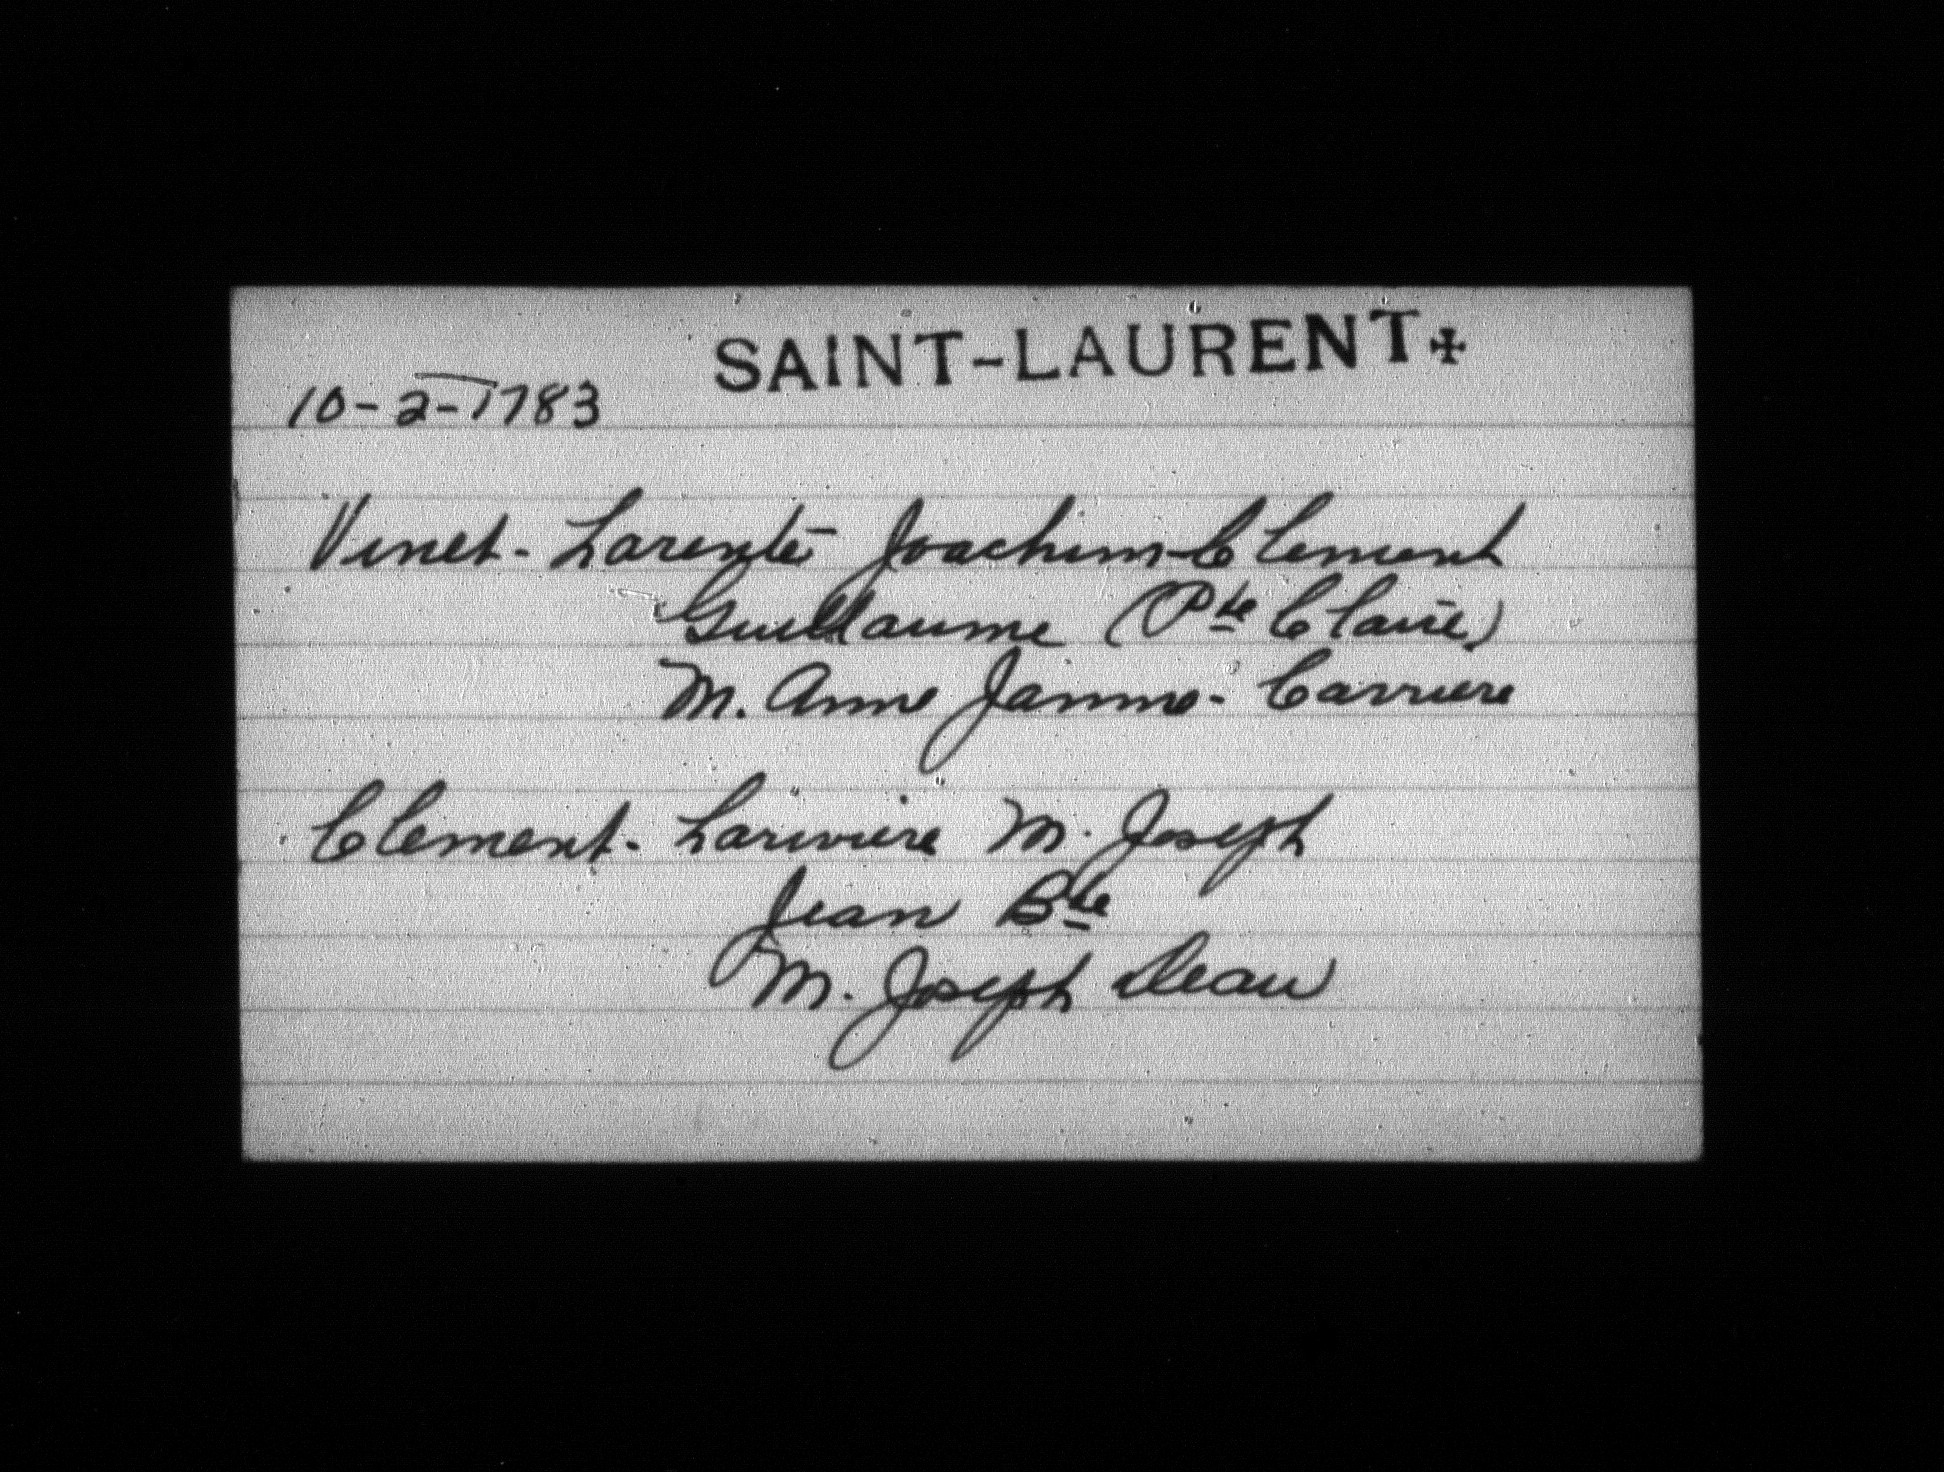 SAINT-LAURENT✠
10-2-1783
Vinet-Larente Joachim-Clement
Guillaume (Pte Claire)
M. Anne Jamme-Carriere
Clement-Lariviere M. Joseph
Jean Bte
M. Joseph Deau